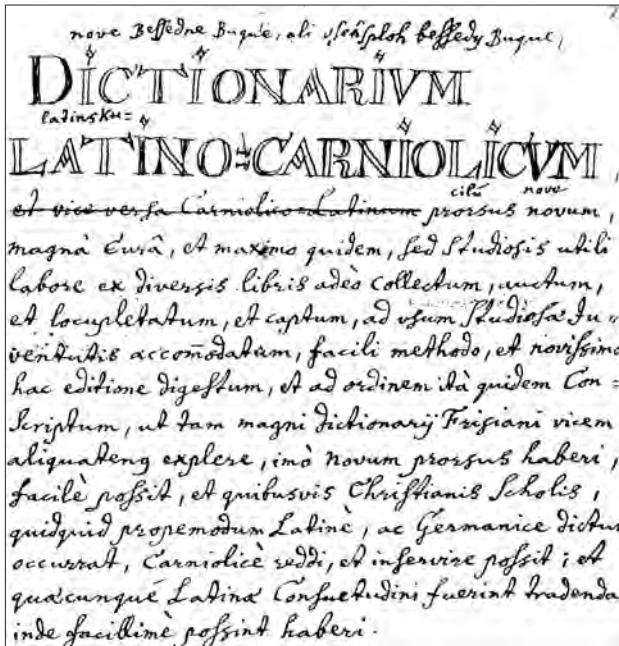 nove Beſsedne Buque, ali vſeh ſploh beſsedy Buque,
DICTIONARIVM
latinsku=
LATINO=CARNIOLICVM,
cilú nove
et vice verſa Carniolico=Latinum prorsus novum,
magnâ Curâ, et maximo quidem, ſed Studiosis utili
labore ex diversis libris adeò Collectum, auctum,
et locupletatum, et captum, ad vsum Studiosæ Iu=
ventutis accom̄odatum, facili methodo, et novissimo
hac editione digeſtum, et ad ordinem ità quidem Con=
ſcriptum, ut tam magni dictionarij Friſiani vicem
aliquatenq explere, imò novum prorsus haberi,
facilè poſsit, et quibusvis Chriſtianis Scholis,
quidquid propemodum Latinè, ac Germanice dictu
occurrat, Carniolicè reddi, et inſervire poſsit; et
quæcunquè Latinæ Conſuetudini fuerint tradenda
inde facillimè poſsint haberi.